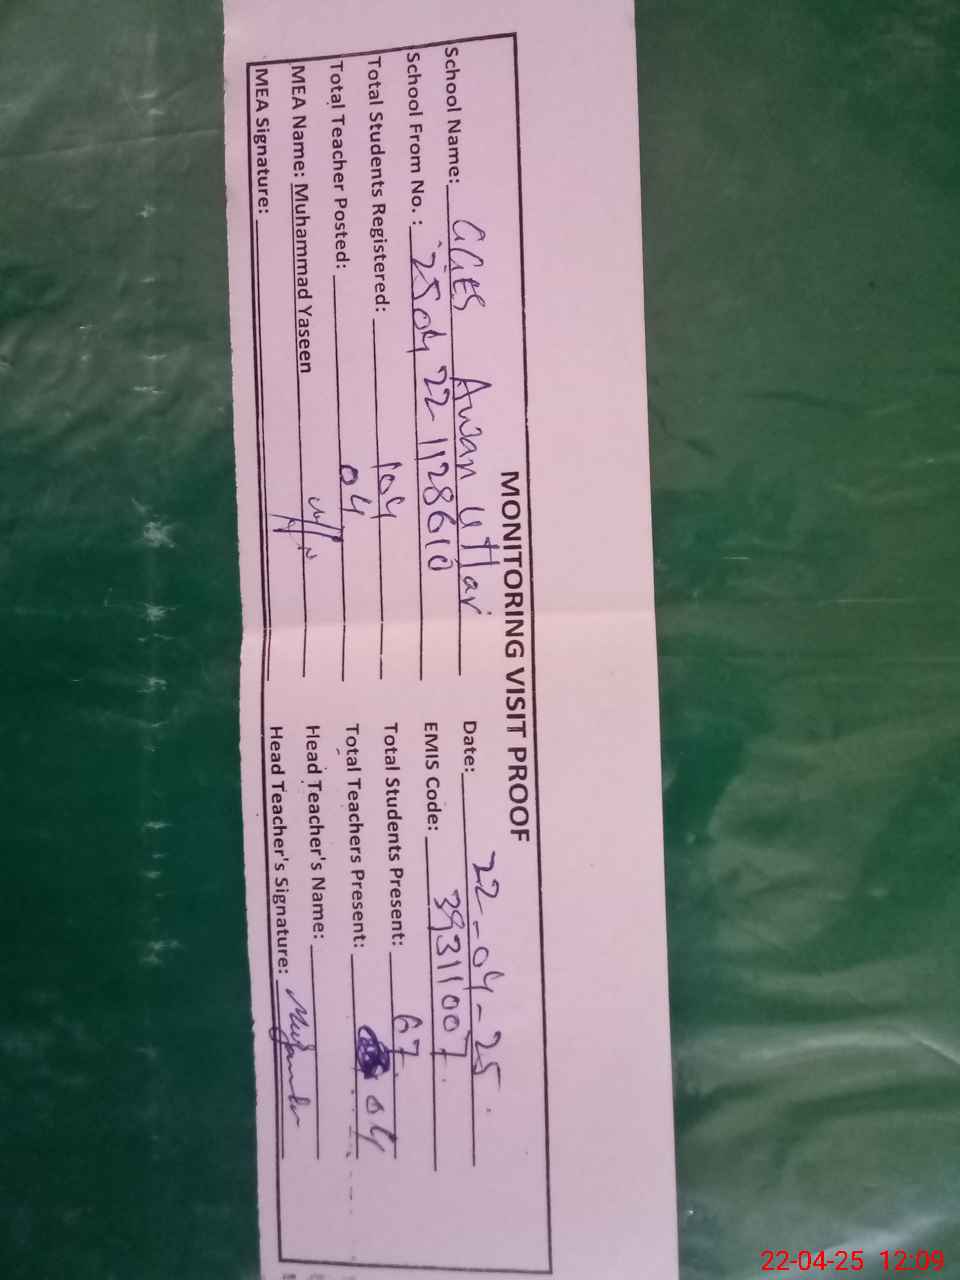 MONITORING VISIT PROOF
School Name: GGES Awan Uttar Date: 22-04-25
School From No. : 2504 22 1128610 EMIS Code: 39311007
Total Students Registered: 104 Total Students Present: 67
Total Teacher Posted: 04 Total Teachers Present: 04
MEA Name: Muhammad Yaseen Head Teacher's Name:
MEA Signature: Head Teacher's Signature:
22-04-25 12:09